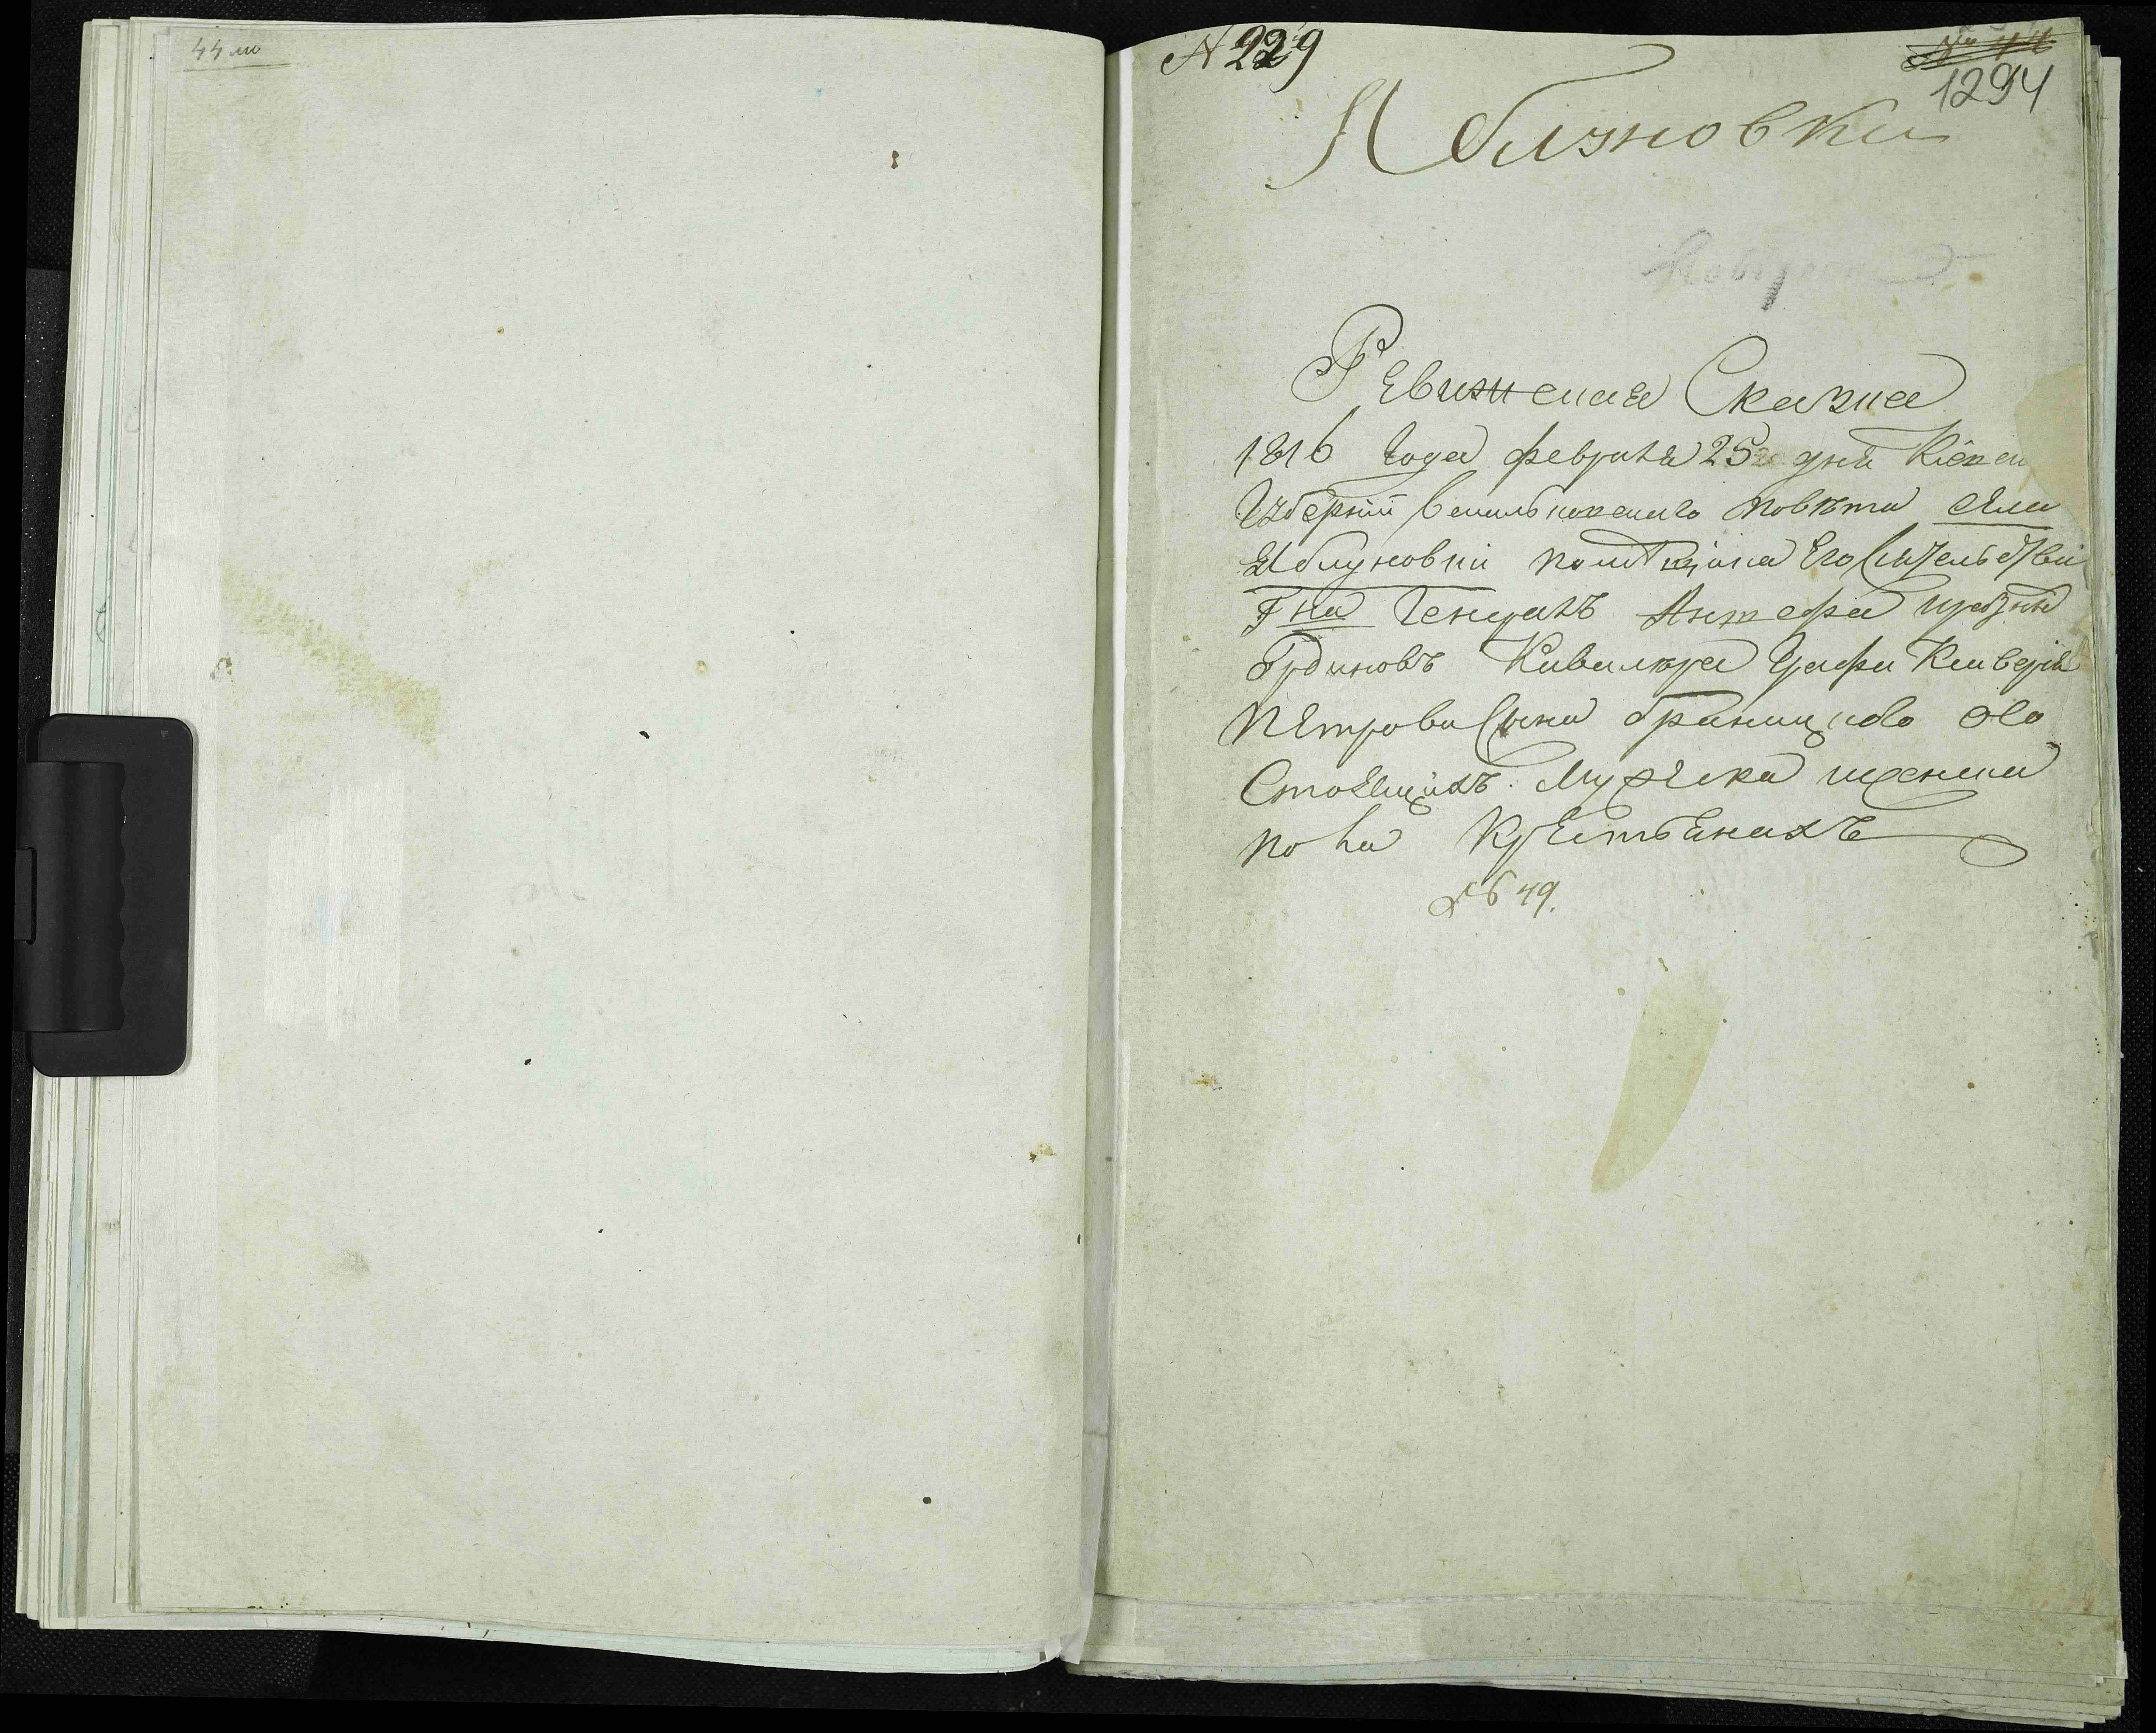 44
№ 229
1294
Яблуновки
Ревизская Сказка
1816 года февраля 25го дня Киевс
Губернии Васильков­скаго повѣта села
Яблуновки помѣщика Его Сиятельства
Гна Генералъ Аншефа и разныхъ
Орденовъ Кавалера Графа Ксаверия
Петрова Сына Браницкаго о
Стоящихъ Мужеска и женска
пола Крестьянахъ
№ 49.